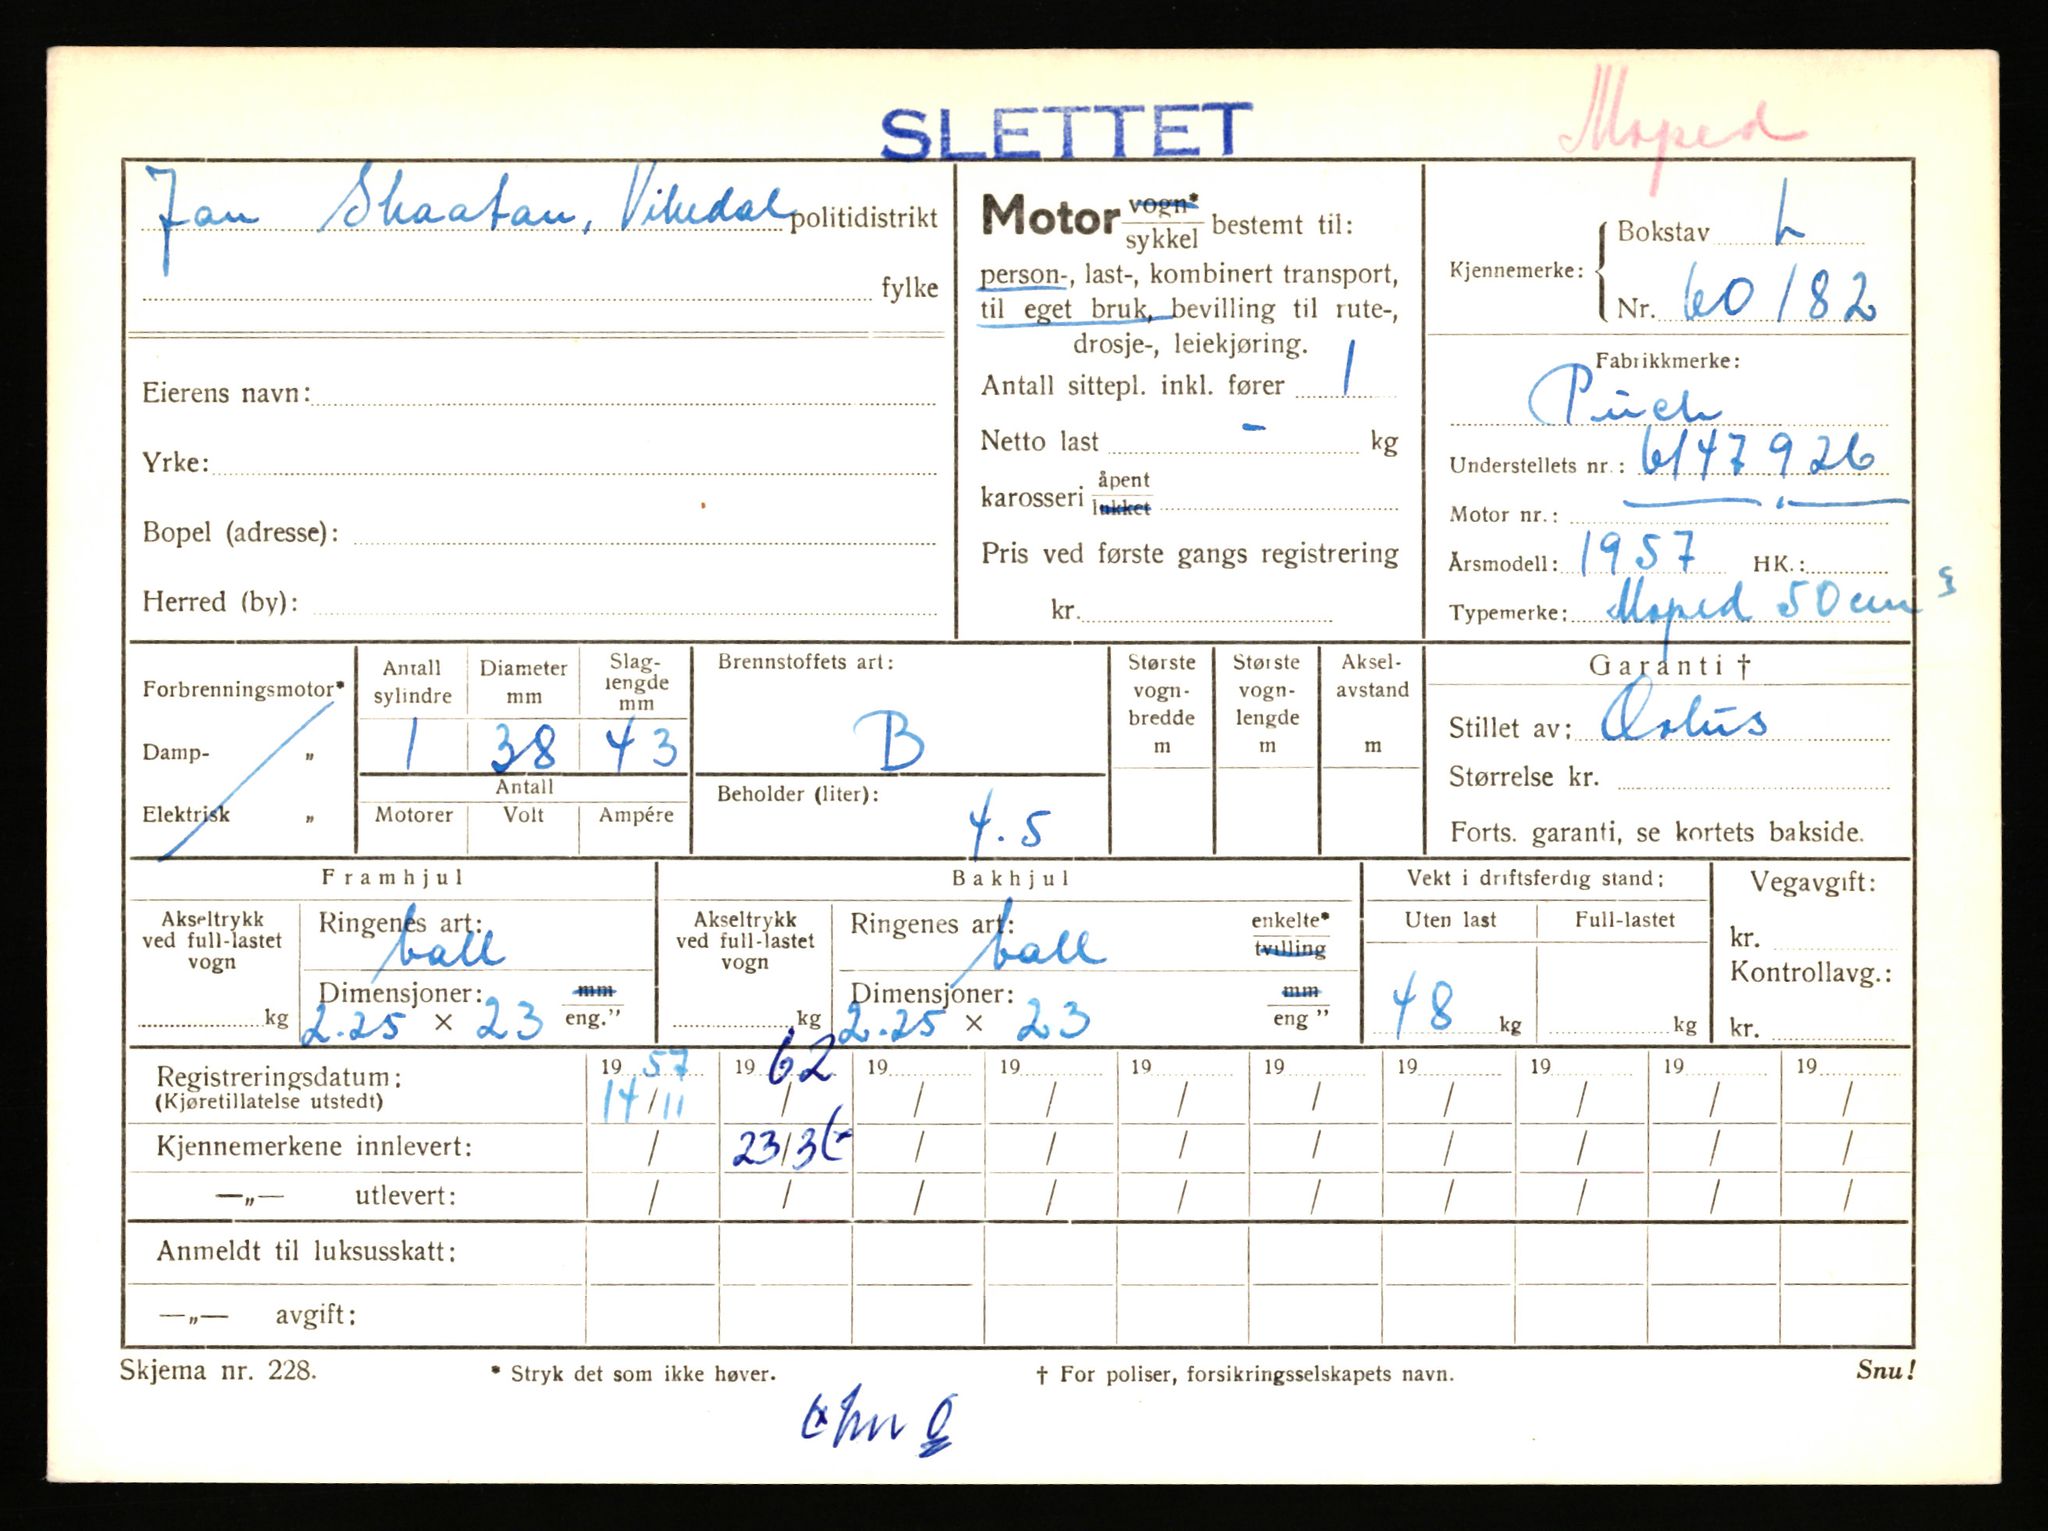 SLETTET
Moped
Jan Skaatan, Vikedal politidistrikt
fylke
Eierens navn:
Yrke:
Bopel (adresse):
Herred (by):
Motor vogn* / sykkel bestemt til:
person-, last-, kombinert transport,
til eget bruk, bevilling til rute-,
drosje-, leiekjøring.
Antall sittepl. inkl. fører 1
Netto last - kg
karosseri åpent / lukket
Pris ved første gangs registrering
kr.
Kjennemerke: Bokstav L
Nr. 60182
Fabrikkmerke:
Puch
Understellets nr.: 6147926
Motor nr.:
Årsmodell: 1957 HK.:
Typemerke: Moped 50 cm3
Forbrenningsmotor*
Damp- „
Elektrisk „
Antall sylindre
Diameter mm
Slag-lengde mm
1 38 43
Antall
Motorer Volt Ampére
Brennstoffets art:
B
Beholder (liter):
4.5
Største vogn-bredde m
Største vogn-lengde m
Aksel-avstand m
Garanti †
Stillet av:
Størrelse kr.
Forts. garanti, se kortets bakside.
Framhjul
Akseltrykk ved full-lastet vogn
kg
Ringenes art:
ball
Dimensjoner: mm / eng.”
2.25 × 23
Bakhjul
Akseltrykk ved full-lastet vogn
kg
Ringenes art: enkelte* / tvilling
ball
Dimensjoner: mm / eng ”
2.25 × 23
Vekt i driftsferdig stand:
Uten last Full-lastet
48 kg kg
Vegavgift:
kr.
Kontrollavg.:
kr.
Registreringsdatum: 1957 1962 19 19 19 19 19 19 19 19
(Kjøretillatelse utstedt) 14/11 / / / / / / / / /
Kjennemerkene innlevert: / 23/3 / / / / / / / /
—„— utlevert: / / / / / / / / / /
Anmeldt til luksusskatt:
—„— avgift:
Skjema nr. 228.
* Stryk det som ikke høver.
† For poliser, forsikringsselskapets navn.
Snu!